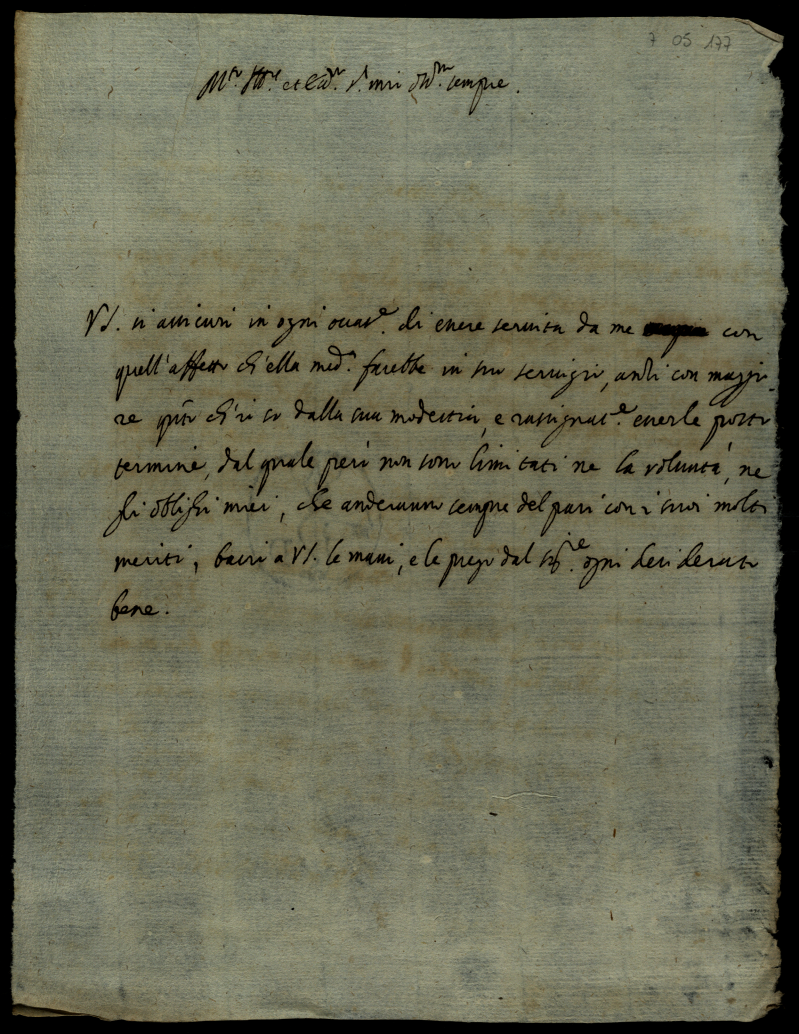 7 05 177
M.to Ill.re et Ecc.mo S.r mio oss.mo sempre.
VS. si assicuri in ogni occas.e di essere servita da me con
quell'affetto ch'ella med.a farebbe in suo servigio, anzi con maggio-
re q.to ch'io so dalla sua modestia, e esserle posto
termine, dal quale però non sono limitati ne la voluntà, ne
gli oblighi miei, che anderanno sempre del pari con i suoi molti
meriti, bacio a VS. le mani, e le prego dal ogni desiderato
bene.